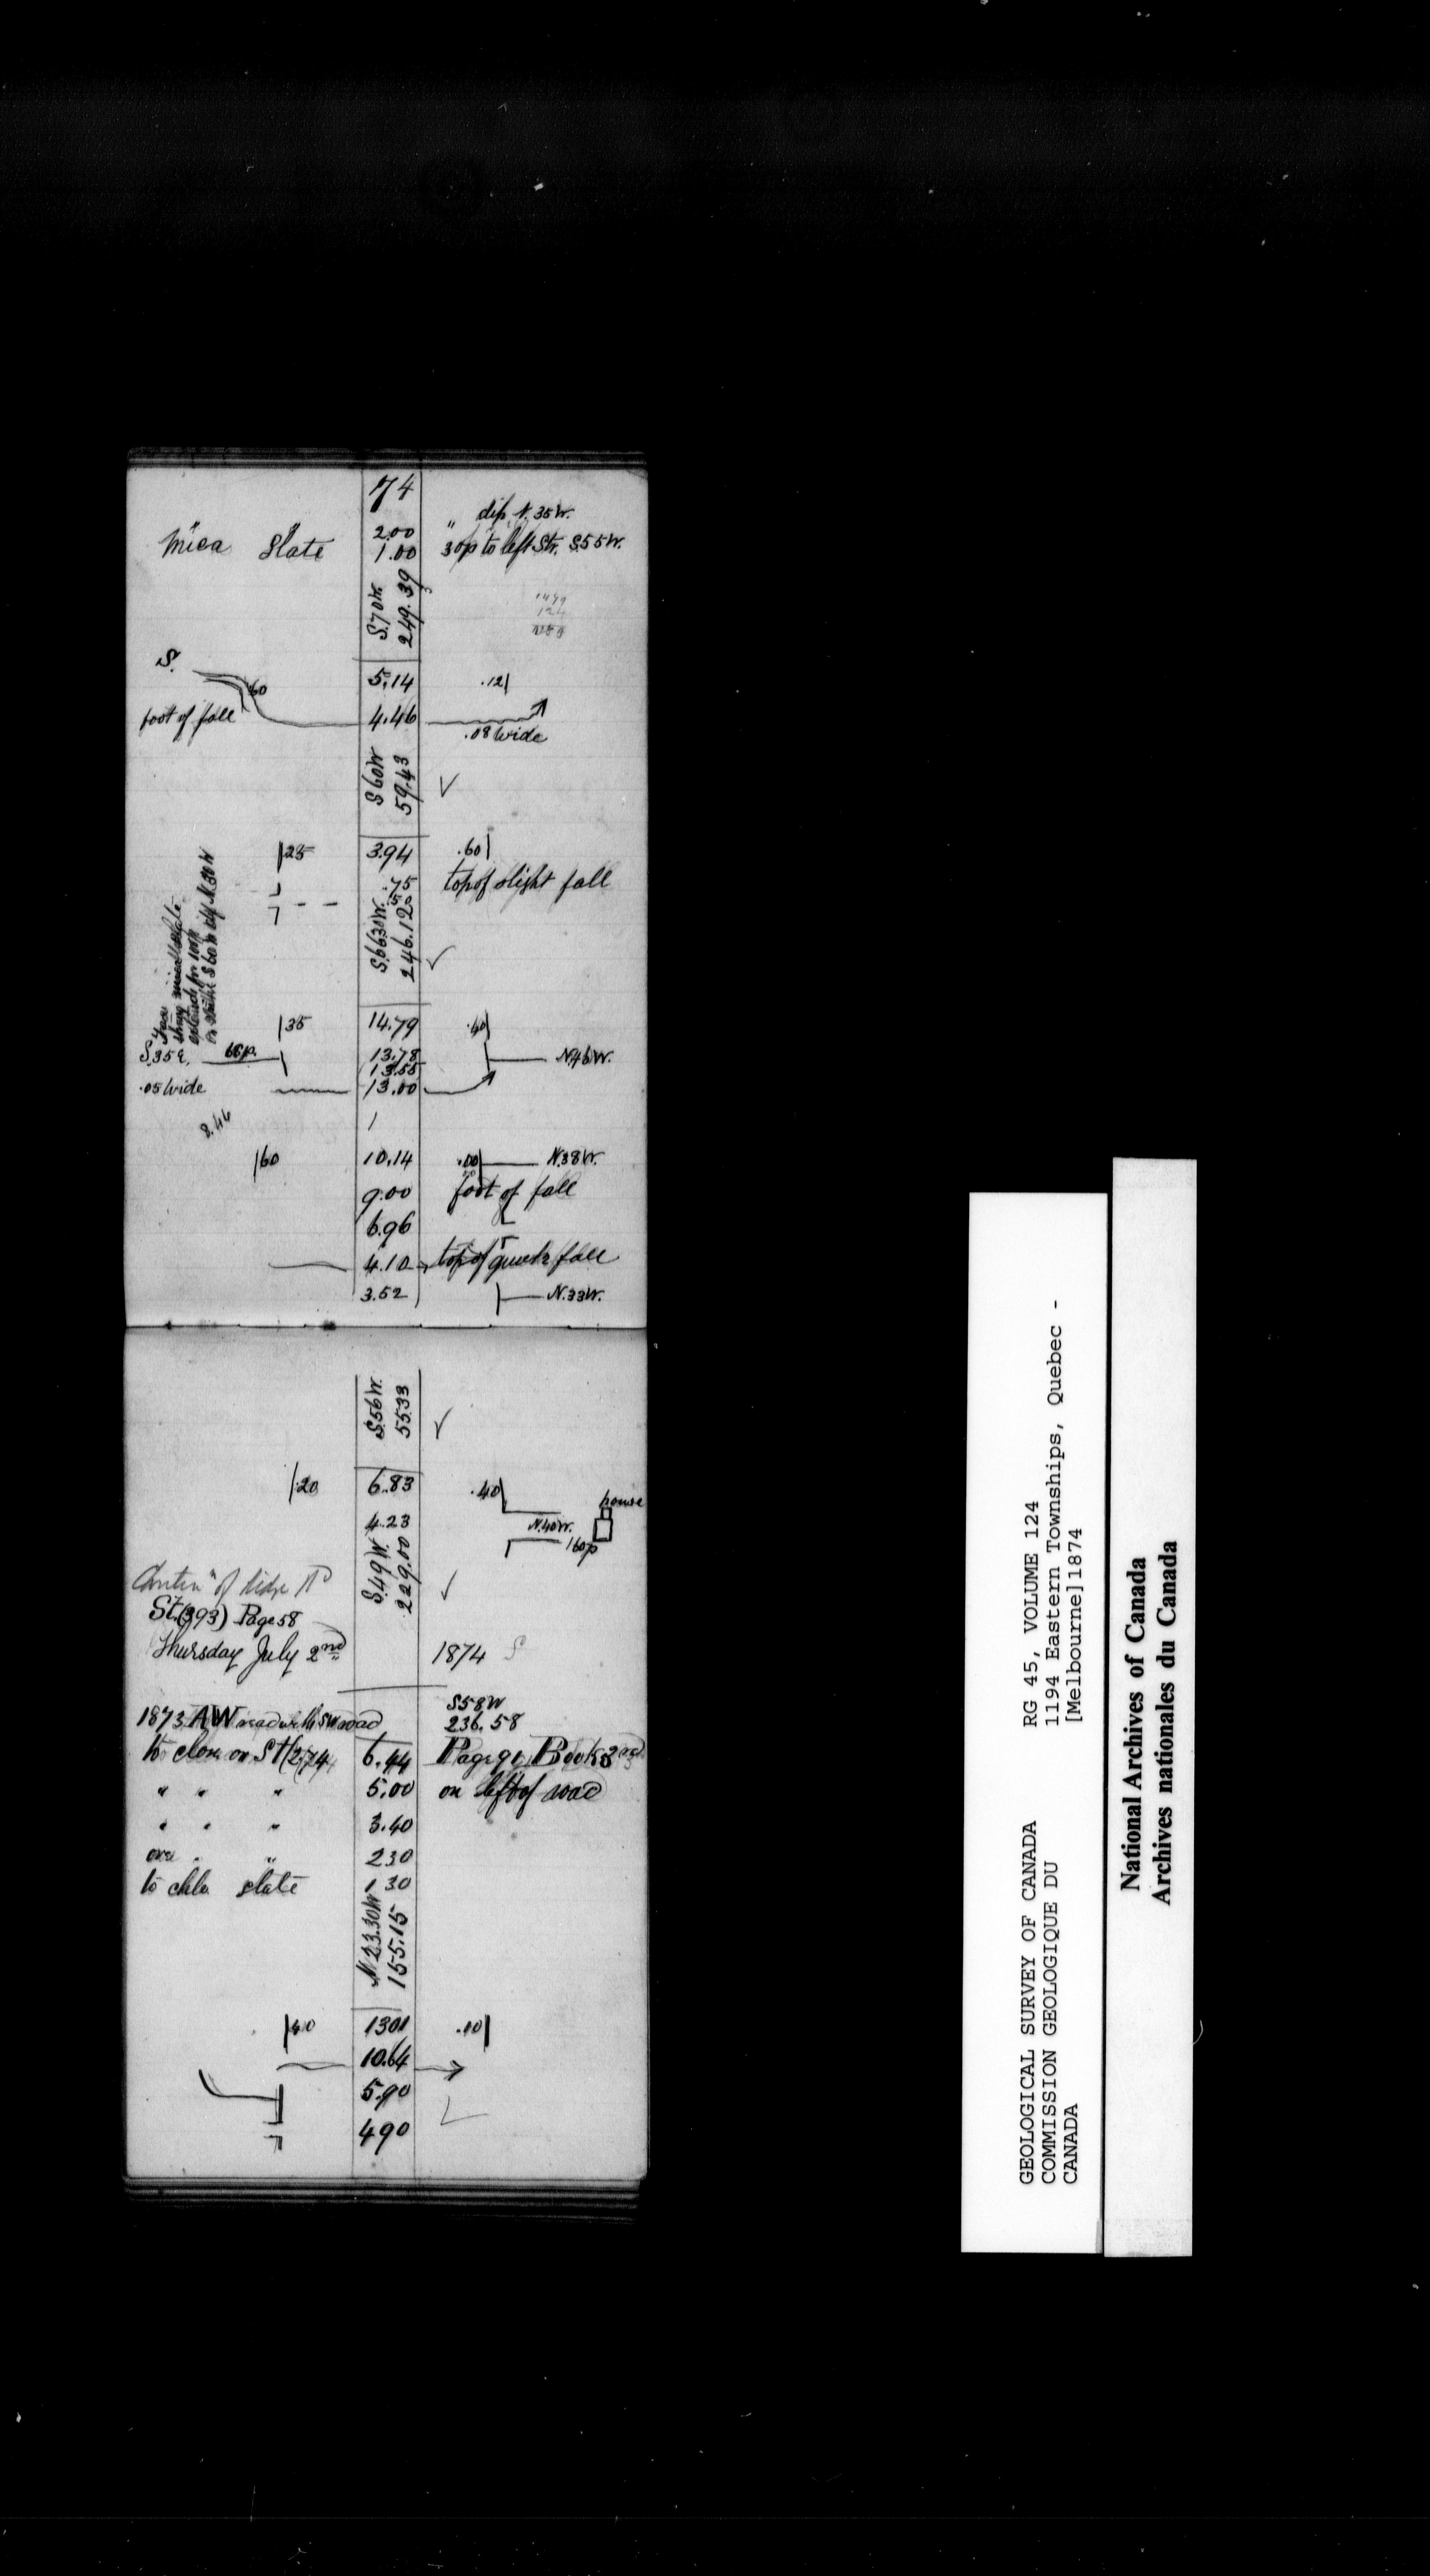 74
dip N. 35 W.
Mica Slate 2.00 "
1.00 30p to left Str. S55W.
S.70W.
249.39
S.
5.14 .12
60
foot of fall 4.46
.08 Wide
S60W
59.43
25 3.94 .60
.75 top of slight fall
.50
S.66.30W.
246.12
35 14.79 .40
S.35E. 13.78 N.46W.
13.55
.05 Wide 13.00
8.44
1
60 10.14 .00 N.38W.
9.00 foot of fall
6.96
4.10 top of fall
3.52 N.33W.
S.56W.
55.33
.20 6.83 .40
house
4.23 N.40W.
160p
S.49W.
229.00
of
St. (393) Page 58
Thursday July 2nd 1874
S58W
1873 AW road
236.58
to on St (274 6.44 Page 91 Book 2nd
" " " 5.00 on left of road
" " " 3.40
over " " 2.30
to chlo slate 1.30
N.23.30W
155.15
40 13.01 .10
10.64
5.90
4.90
GEOLOGICAL SURVEY OF CANADA
COMMISSION GEOLOGIQUE DU
CANADA
RG 45, VOLUME 124
1194 Eastern Townships, Quebec -
[Melbourne]1874
National Archives of Canada
Archives nationales du Canada